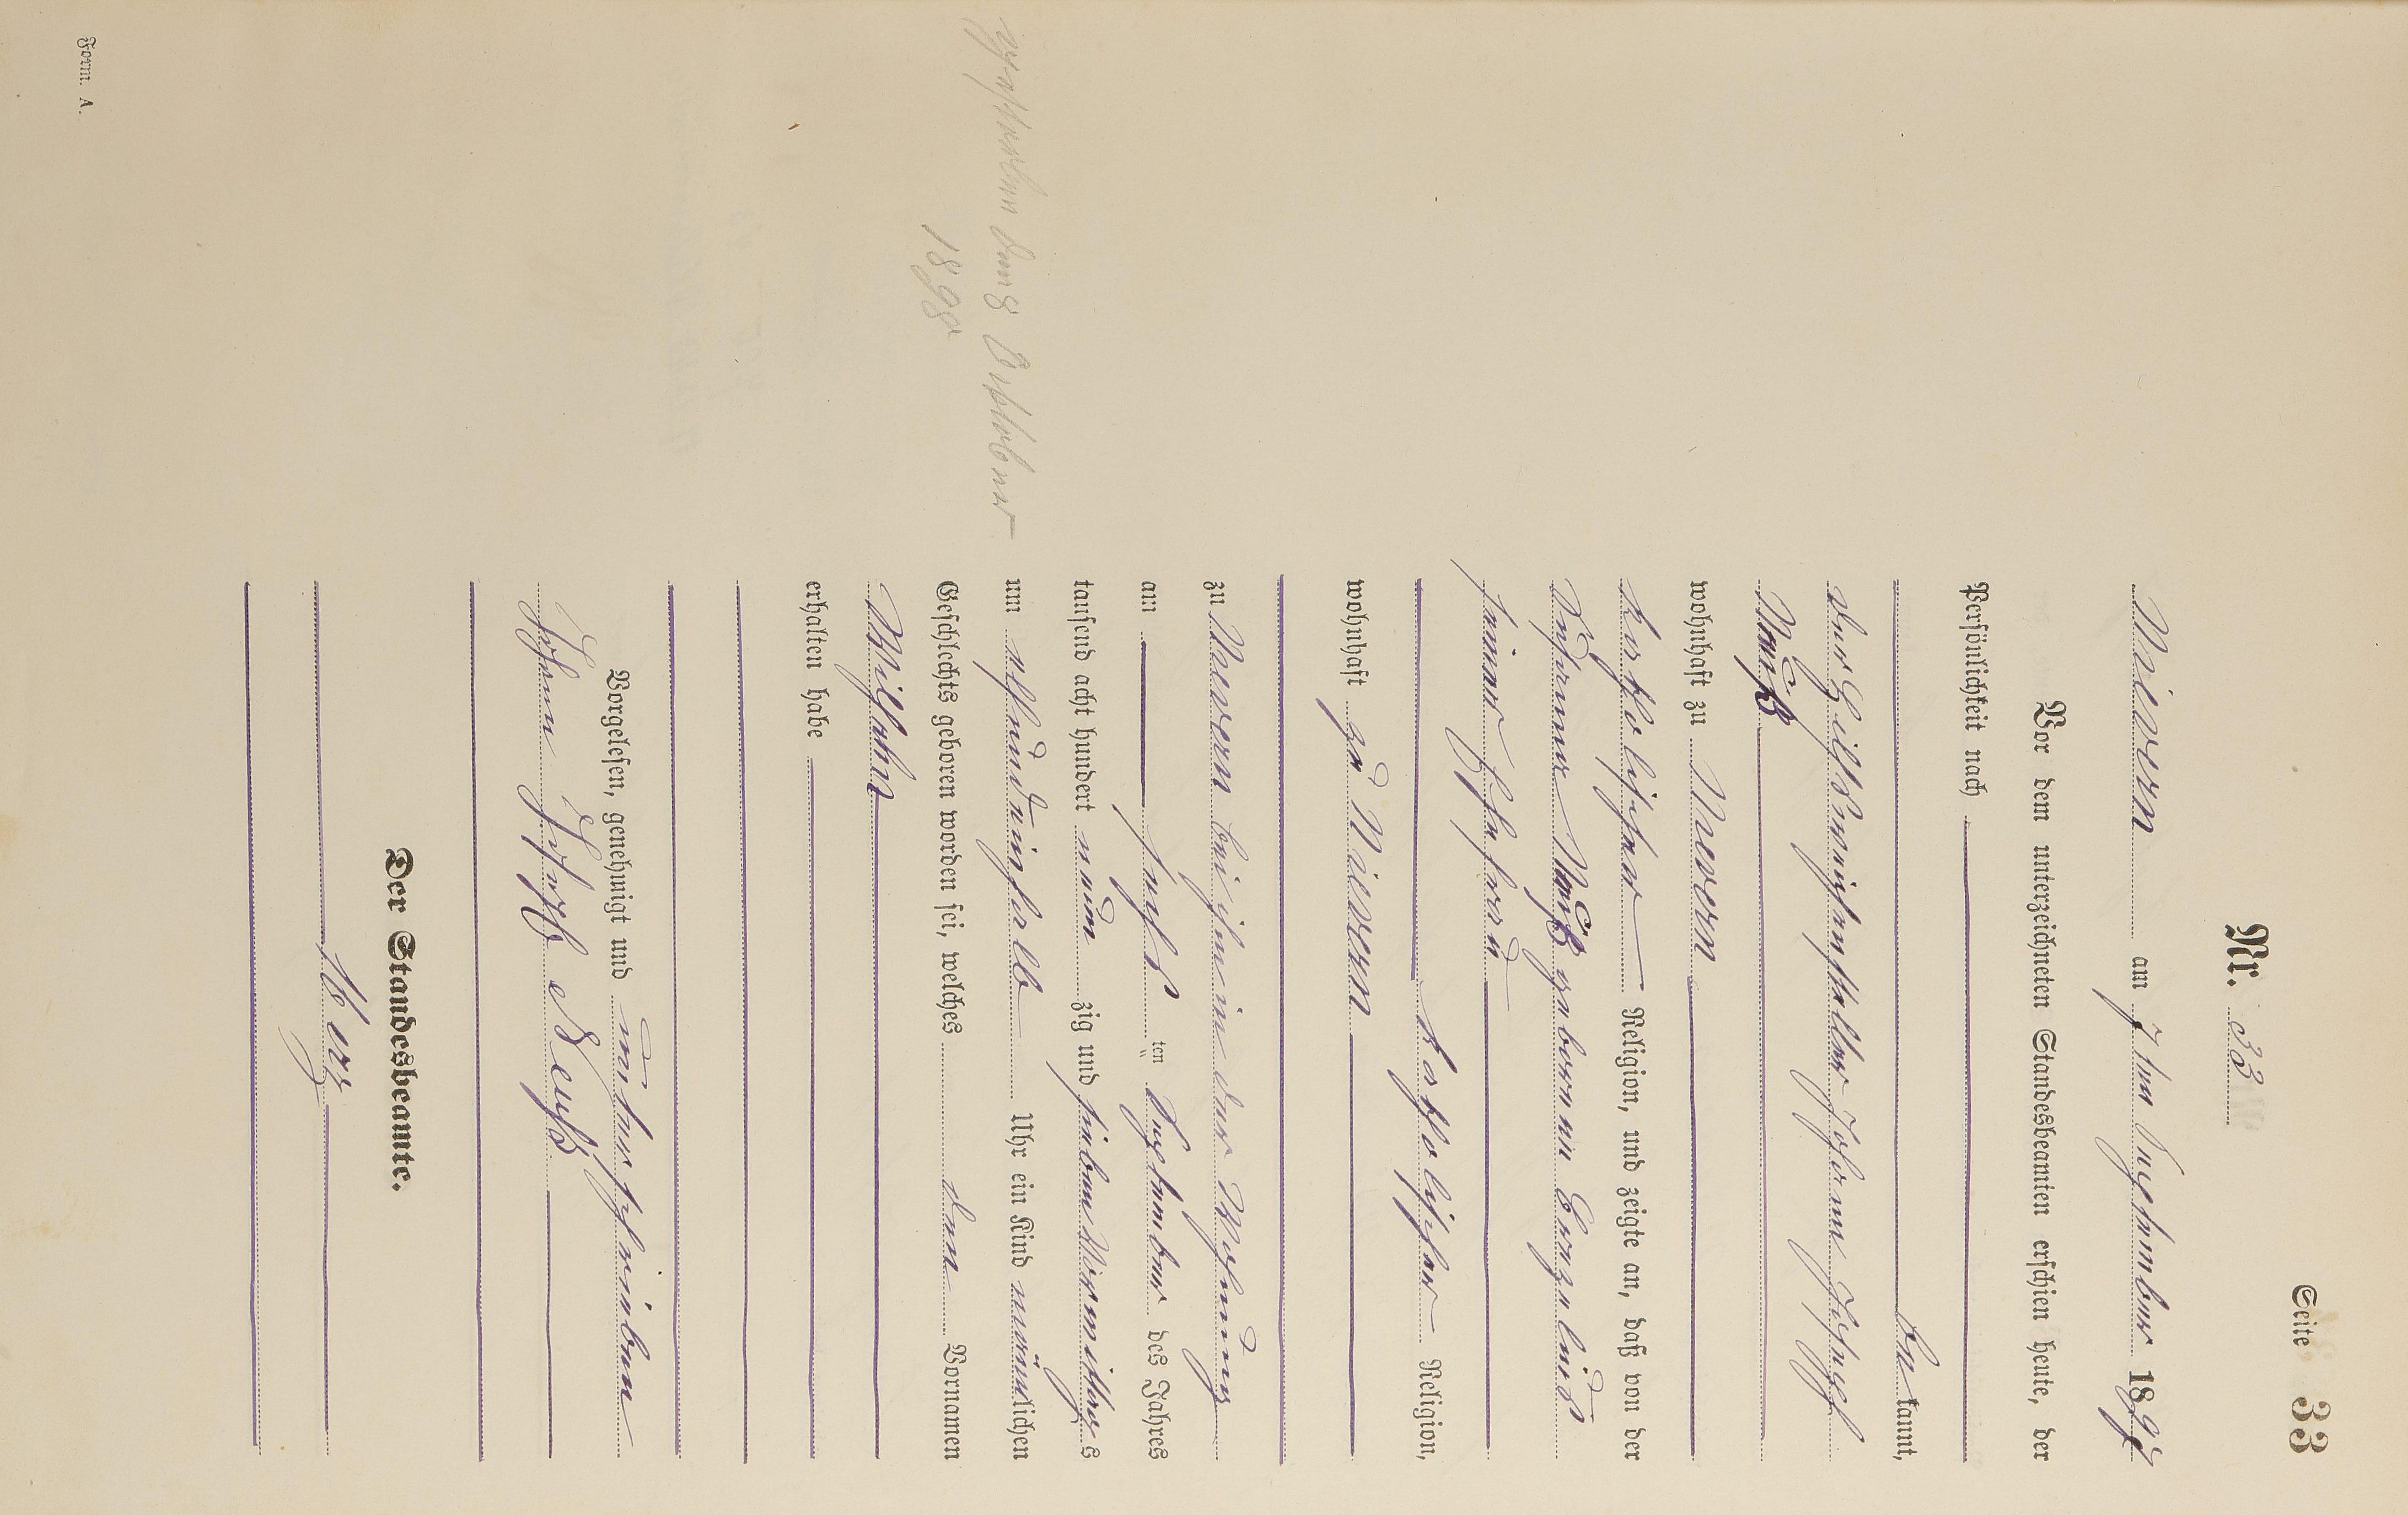 Seite 33
Nr. 33
Nievern am 7ten September 1897
Vor dem unterzeichneten Standesbeamten erschien heute, der
Persönlichkeit nach
bekannt,
der Hilfsweichensteller Johann Josef
Neuß
wohnhaft zu Nievern
katholischer Religion, und zeigte an, daß von der
Johanna Neuß geborenen
seiner Ehefrau
katholischer Religion,
wohnhaft zu Nievern
zu Nievern bei ihm in der Wohnung
am sechsten September des Jahres
tausend acht hundert neunzig und sieben Vormittags
um elfundeinhalb Uhr ein Kind männlichen
Geschlechts geboren worden sei, welches den Vornamen
Wilhelm
erhalten habe
gestorben den 8 Oktober
1898
Vorgelesen, genehmigt und unterschrieben
Johann Josef Neuß
Der Standesbeamte.
Form. A.